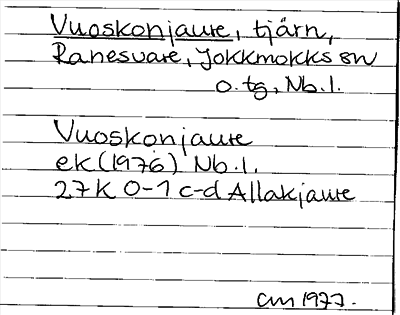 Vuoskonjaure, tjärn,
Ranesvare, Jokkmokks sn
o. tg, Nb. l.
Vuoskonjaure
ek (1976) Nb. l.
27K 0-1 c-d Allakjaure
CM 1977.